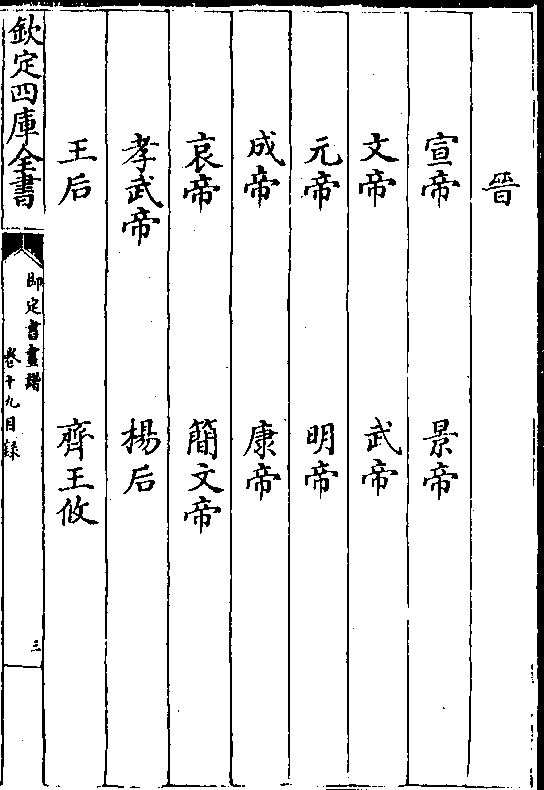 晉
宣帝　景帝
文帝　武帝
元帝　明帝
成帝　康帝
哀帝　簡文帝
孝武帝　楊后
王后　齊王攸
欽定四庫全書
御定書畫譜
卷十九目録
三